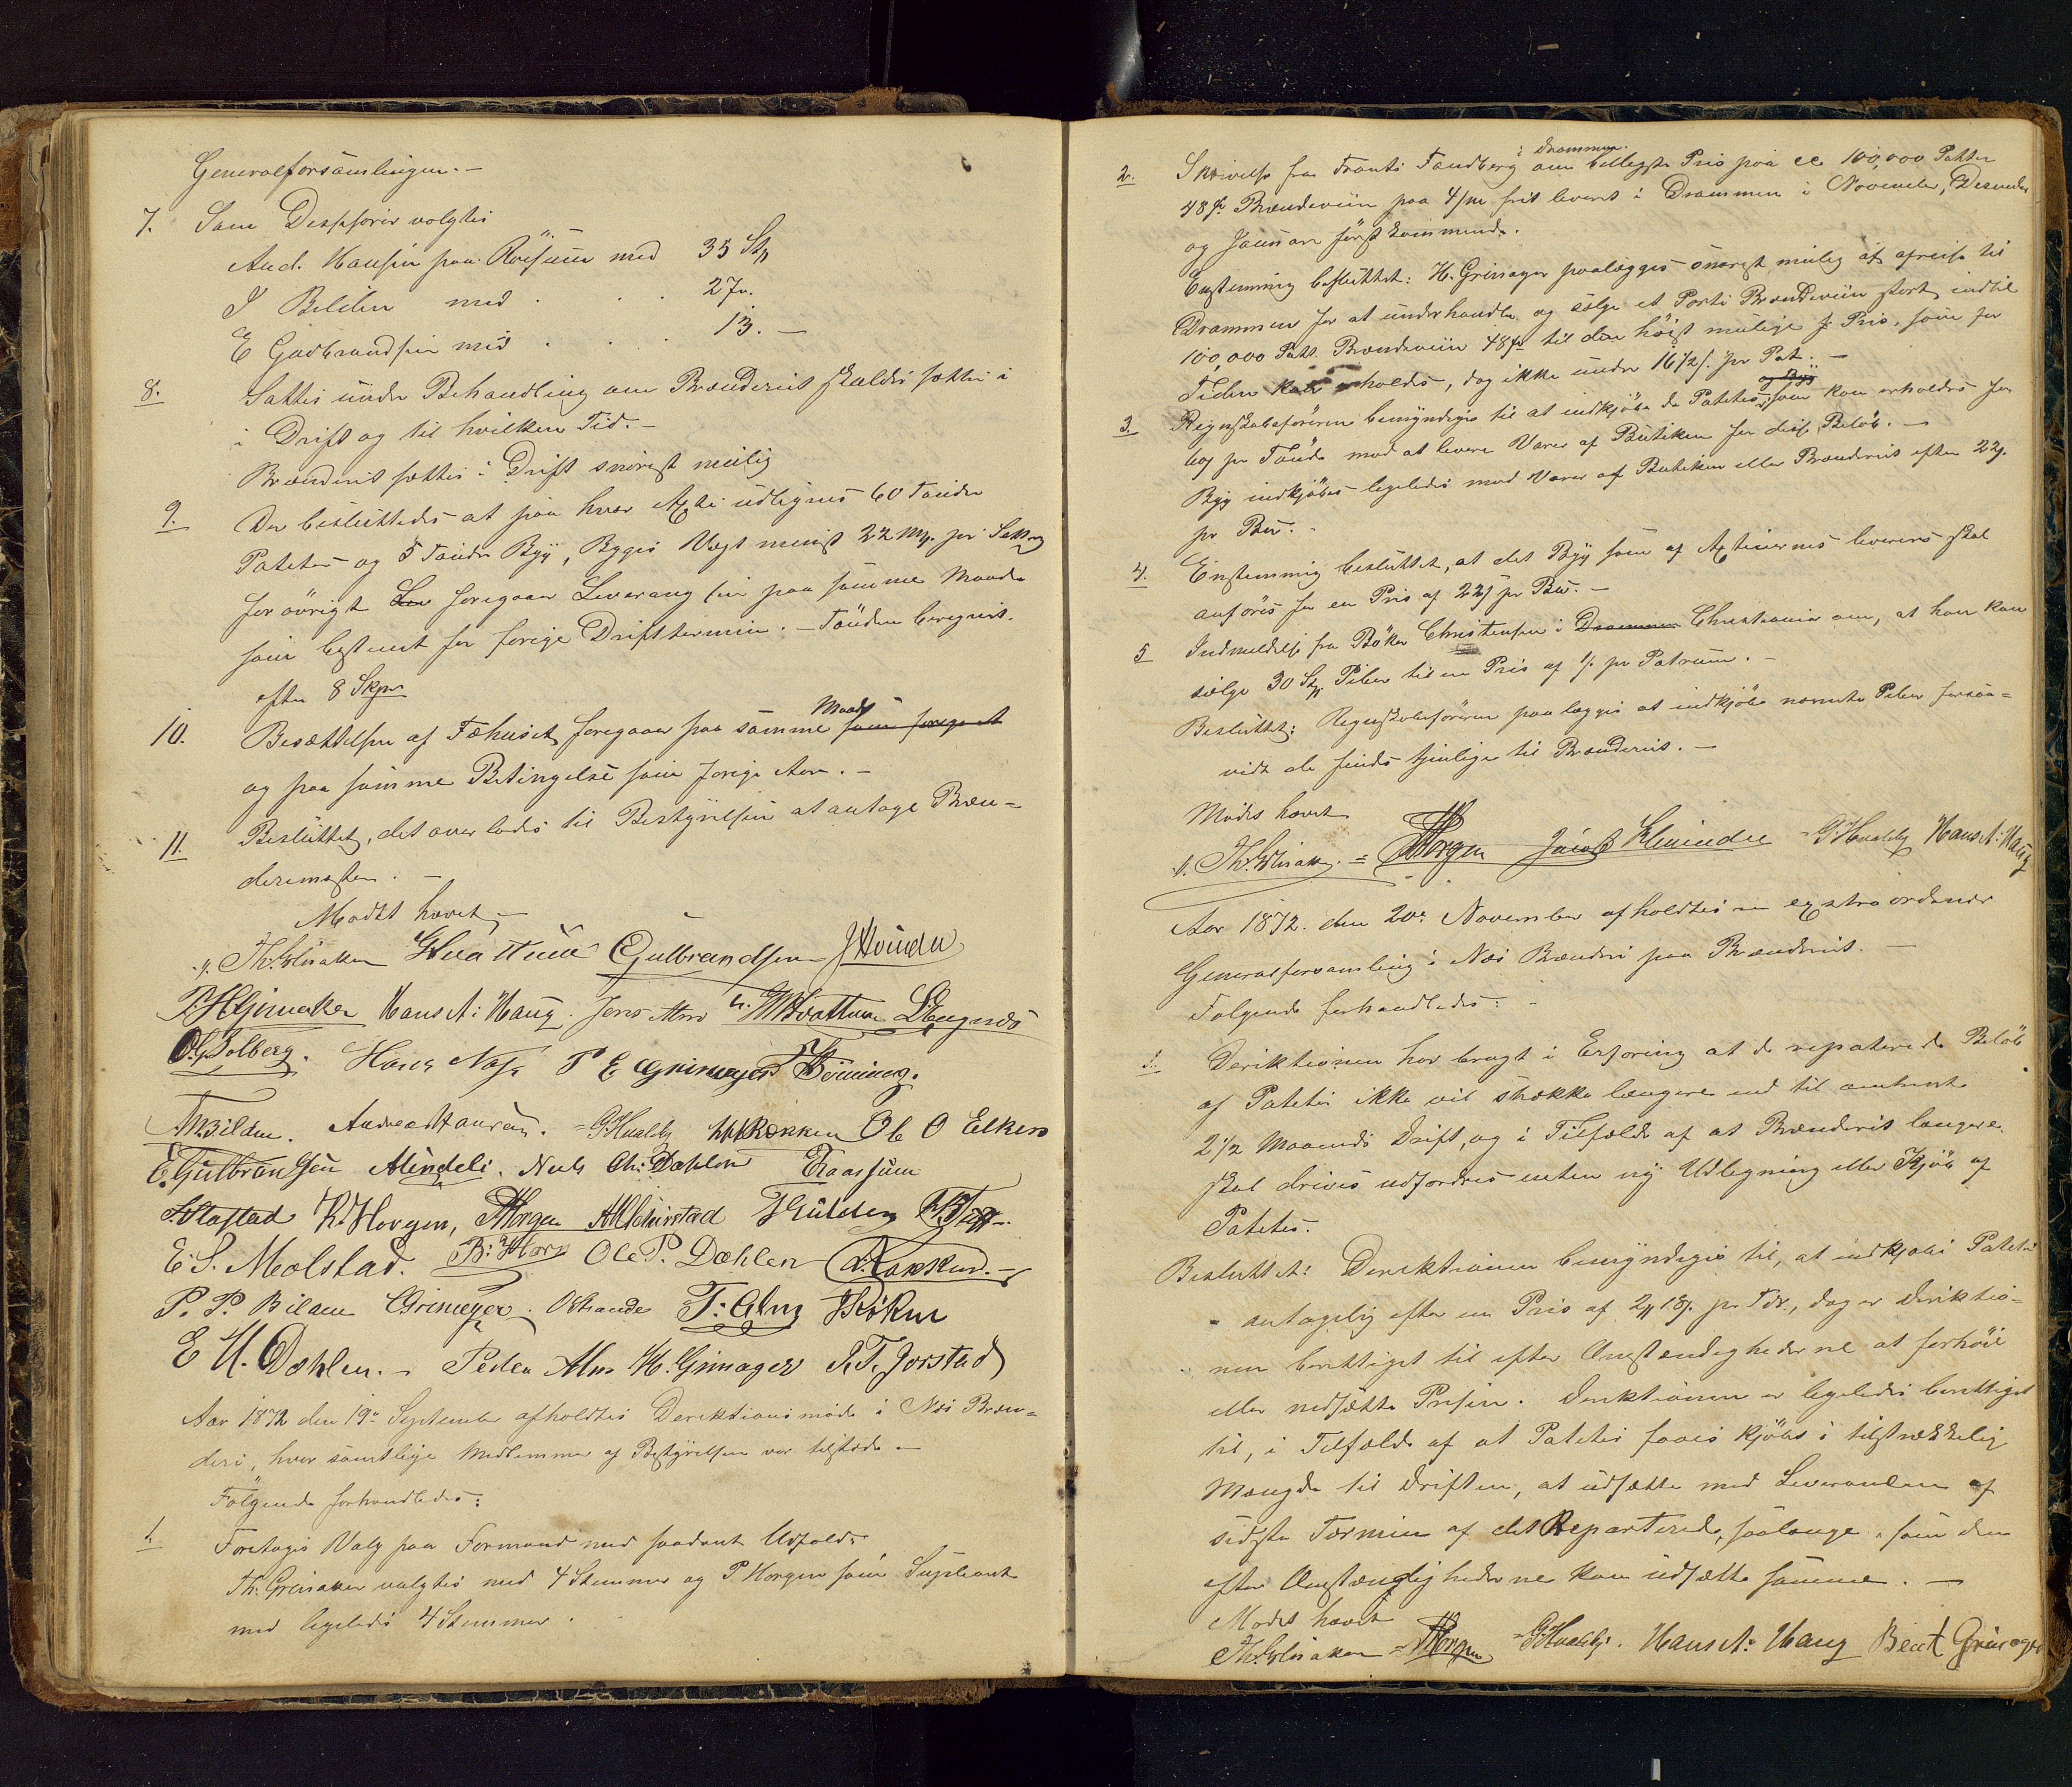 Generalforsamlingen. —
7. Som Desppsører valgtes
And. Hansen paa Röisum med 35 St
J Bilden med . . . 27 "
E Gudbrandsen med . . . 13. —
8. Sattes under Behandling om Brænderiet skulde sættes i
i Drift og til hvilken Tid. —
Brænderiet sættes i Drift snarest mulig
9. Der besluttedes at paa hver Actie udlignes 60 Tönder
Poteter og 5 Tönder Byg, Bygets Vægt mindst 22 Mrk. pr Setting
for övrigt foregaar Leverancen paa samme Maade
som bestemt for forrige Driftstermin. — Tönden beregnes
efter 8 Skpr
10. Besættelsen af Fæhuset foregaar paa samme Maade som foregaaet
og paa samme Betingelse som forrige Aar. —
11. Besluttet, det overlades til Bestyrelsen at antage Bræn=
derimester. —
Mødet hævet —
Th. Grinaker G Hvattum E Gulbrandsen J Kleinder
P. H Grinaker Hans A: Haug. Jens Alm H Hvattum L Engnæs
O. G Solberg. Hans Næss P E Grimager T Horning.
A M Bilden. Andreas Hansen. G Hvaleby H Røkken Ole O Elken
E. Gulbransen A Lindeli. Nels Chr: Dæhlen E Raassum
Stastad K. Horgen, P Horgen A M Heierstad T Gulden
E. S. Molstad. B: Horn Ole P. Dæhlen A. Røkken. —
P. P. Bilden Grimager. O Strande T: Alm Røken
E H. Dæhlen. — Peder Alm H. Grimager P. T. Jorstad
Aar 1872 den 19de September afholdtes Derektionsmøde i Næs Bræn=
deri, hvor samtlige Medlemmer af Bestyrelsen var tilstede —
Følgende forhandledes:
1. Foretoges Valg paa Formand med saadant Udfald:
Th: Grinaker valgtes med 4 Stemmer og P Horgen som Supleant
med ligeledes 4 Stemmer.
2. Skrivelse fra Frants Tandberg i Drammen om billigste Pris paa ca 100,000 Potter
48 gr. Brændeviin paa 4/m frit leveret i Drammen i November, December
og Januar førstkommende.
Enstemmig besluttet: H. Grimager paalægges snarest mulig at afreise til
Drammen for at underhandle og sælge et Parti Brændeviin stort indtil
100,000 Pott. Brændeviin 48 gr. til den höist mulige Pris, som for
Tiden kan erholdes, dog ikke under 16 1/2 s. pr Pot. —
3. Regnskabsføreren bemyndiges til at indkjöbe de Poteter og Byg som kan erholdes for
60 s pr Tönde mod at levere Varer af Butiken for disse Beløb. —
Byg indkjöbes ligeledes mod Varer af Butiken eller Brænderiet efter 22 s.
pr Bm. —
4. Enstemmig besluttet, at det Byg som af Actieierne leveres skal
anføres for en Pris af 22 s pr Bm. —
5 Indmeldelse fra Bøker Christensen i Drammen Christiania om, at han kan
sælge 30 St Piber til en Pris af 1/. pr Potrum. —
Besluttet: Regnskabsföreren paalægges at indkjöbe nævnte Piber forsaa=
vidt de findes tjenlige til Brænderiet. —
Mødet hævet
Th. Grinaker. = P Horgen Jacob Kleinder = G Hvaleby Hans A: Haug
Aar 1872. den 20de November afholdtes en extraordenær
Generalforsamling i Næs Brænderi paa Brænderiet. —
Følgende forhandledes: —
1. Derektionen har bragt i Erfaring at de reparterede Beløb
af Poteter ikke vil strække længere end til omtrent
2 1/2 Maaneds Drift, og i Tilfælde af at Brænderiet længere
skal drives udfordres enten ny Udlegning eller Kjöb af
Poteter.
Besluttet: Derektionen bemyndiges til, at indkjøbe Poteter
antagelig efter en Pris af 2 18 s. pr Tdr., dog er Direktio=
nen berettiget til efter Omstændighederne at forhöie
eller nedsætte Prisen. Direktionen er ligeledes berettiget
til, i Tilfælde af at Poteter faaes kjöbt i tilstrækkelig
Mængde til Driften, at udsætte med Leverancen af
sidste Termin af det Reparterede, saalænge, som den
efter Omstændighederne kan udsætte samme. —
Mødet hævet
Th. Grinaker = P Horgen = G Hvaleby. Hans A: Haug Bent Grimager